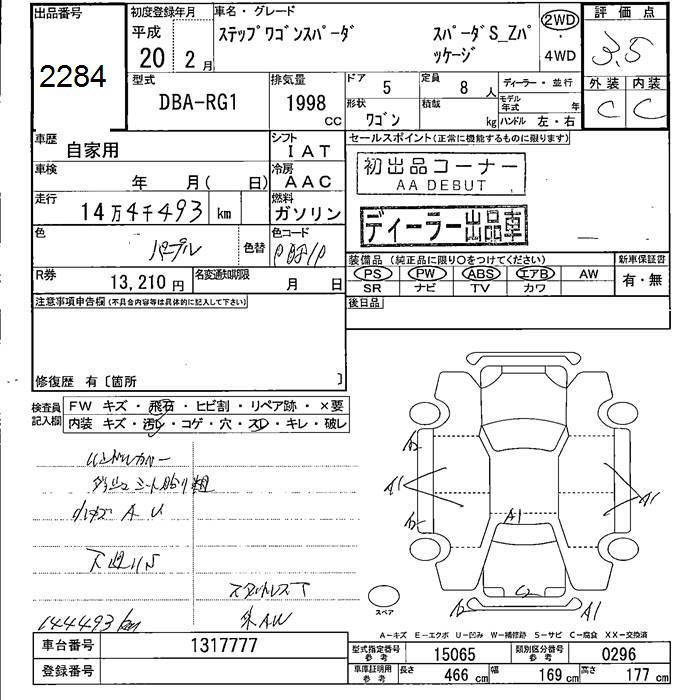 出品番号
2284
初度登録年月
平成
20 2月
車名・グレード
ステップワゴンスパーダ
スパーダS_Zパ
ッケージ
2WD
・
4WD
評価点
3.5
外装 内装
C C
型式
DBA-RG1
排気量
1998
CC
ドア
5
定員
8人
形状
ワゴン
積載
kg
ディーラー・並行
モデル年式 年
ハンドル 左・右
車歴
自家用
シフト
IAT
車検
年 月( 日)
冷房
AAC
走行
14万4千493 km
燃料
ガソリン
色
パープル
色替
色コード
R券
13,210円
名変通知期限
月 日
セールスポイント(正常に機能するものに限ります)
初出品コーナー
AA DEBUT
ディーラー出品車
装備品(純正品に限り○をつけてください)
PS PW ABS エアB AW
SR ナビ TV カワ
新車保証書
有・無
後日品
注意事項申告欄(不具合内容等は具体的に記入して下さい)
修復歴 有〔箇所 〕
検査員
記入欄
FW キズ・飛石・ヒビ割・リペア跡・×要
内装 キズ・汚レ・コゲ・穴・スレ・キレ・破レ
ハンドルカバー
小キズ A U
144493km
外AW
A2
A1
A2
A1
A1
A1
スペア
A-キズ E-エクボ U-凹み W-補修跡 S-サビ C-腐食 XX-交換済
車台番号
1317777
登録番号
型式指定番号
参考
15065
類別区分番号
参考
0296
車庫証明用
参考
長さ
466 cm
幅
169 cm
高さ
177 cm